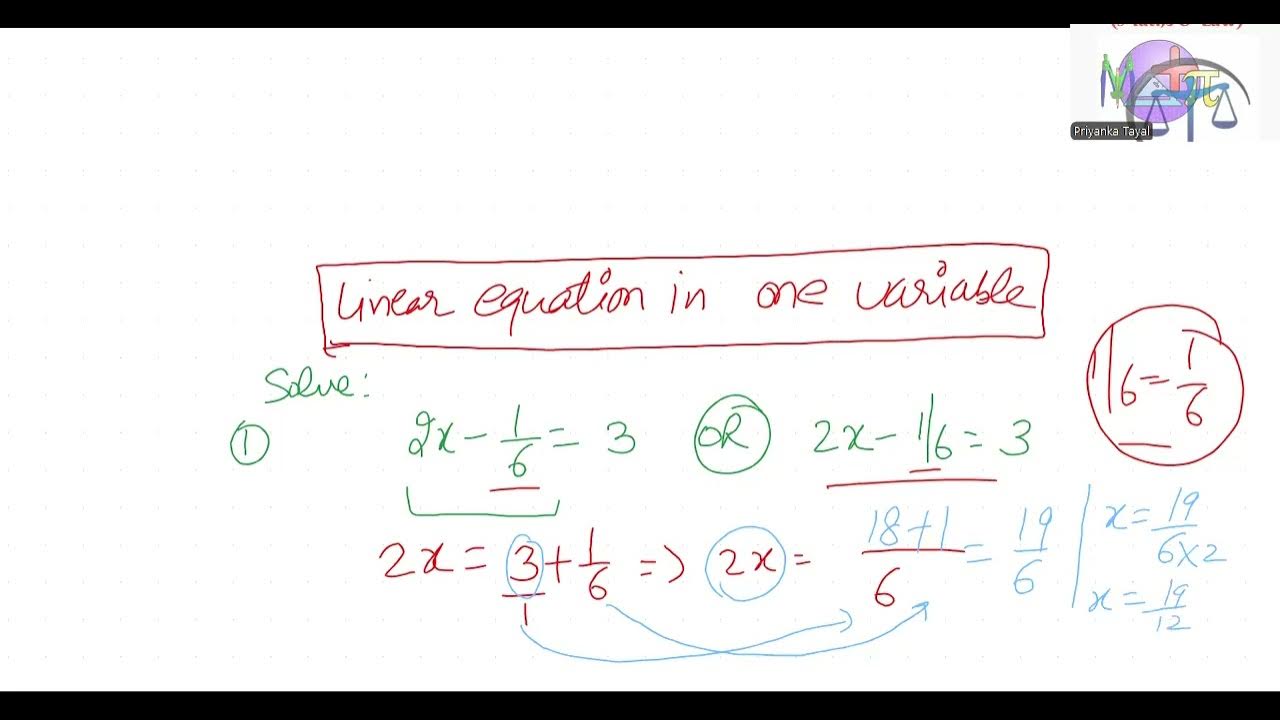 Priyanka Tayal
Linear equation in one variable
Solve:
① 2x - 1/6 = 3 OR 2x - 1/6 = 3
1/6 = 1/6
2x = 3/1 + 1/6 => 2x = 18+1/6 = 19/6
x = 19/6×2
x = 19/12